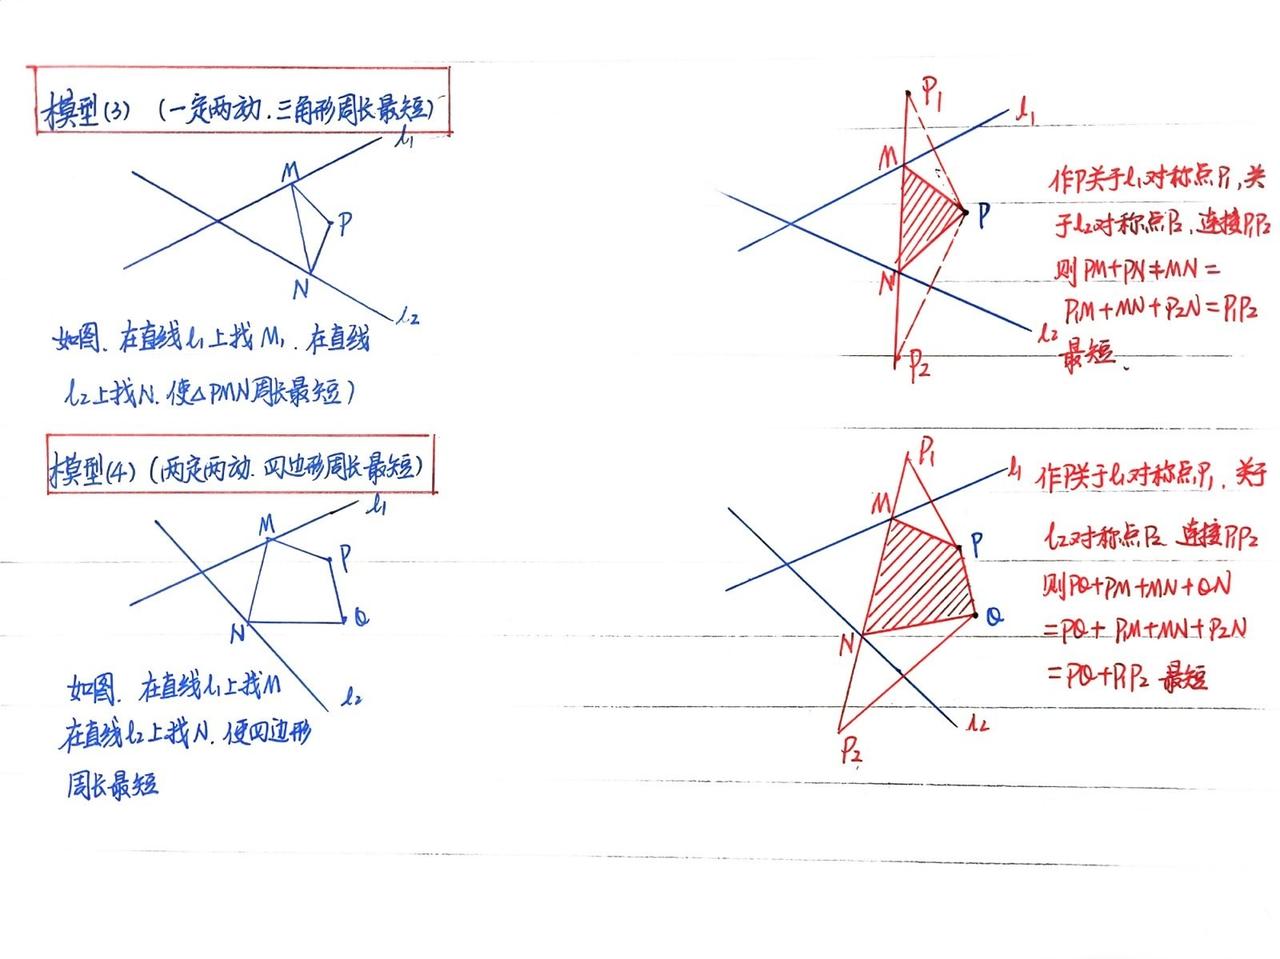 模型(3) (一定两动.三角形周长最短)
l₁
M
P
N
l₂
如图. 在直线l₁上找M,. 在直线
l₂上找N. 使△PMN周长最短)
P₁
l₁
M
P
N
l₂
P₂
作P关于l₁对称点P₁,关
于l₂对称点P₂, 连接P₁P₂
则PM+PN+MN=
P₁M+MN+P₂N=P₁P₂
最短.
模型(4) (两定两动. 四边形周长最短)
l₁
M
P
N
Q
l₂
如图. 在直线l₁上找M
在直线l₂上找N. 使四边形
周长最短
P₁
l₁
M
P
Q
N
l₂
P₂
作P关于l₁对称点P₁. 关于
l₂对称点P₂ 连接P₁P₂
则PQ+PM+MN+QN
=PQ+P₁M+MN+P₂N
=PQ+P₁P₂ 最短